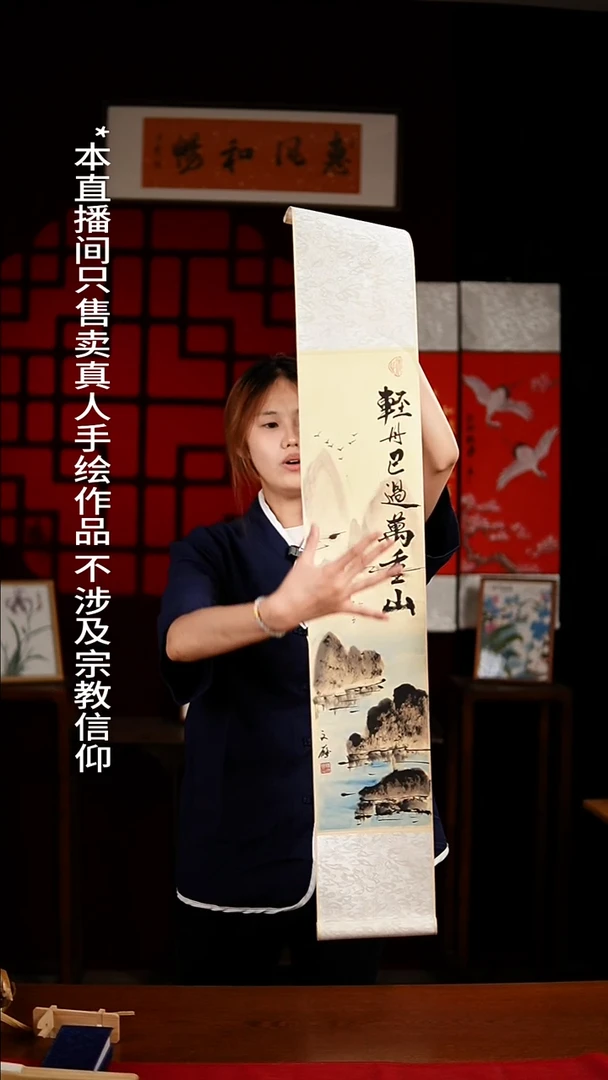 惠風和暢
*本直播间只售卖真人手绘作品 不涉及宗教信仰
輕舟已過萬重山